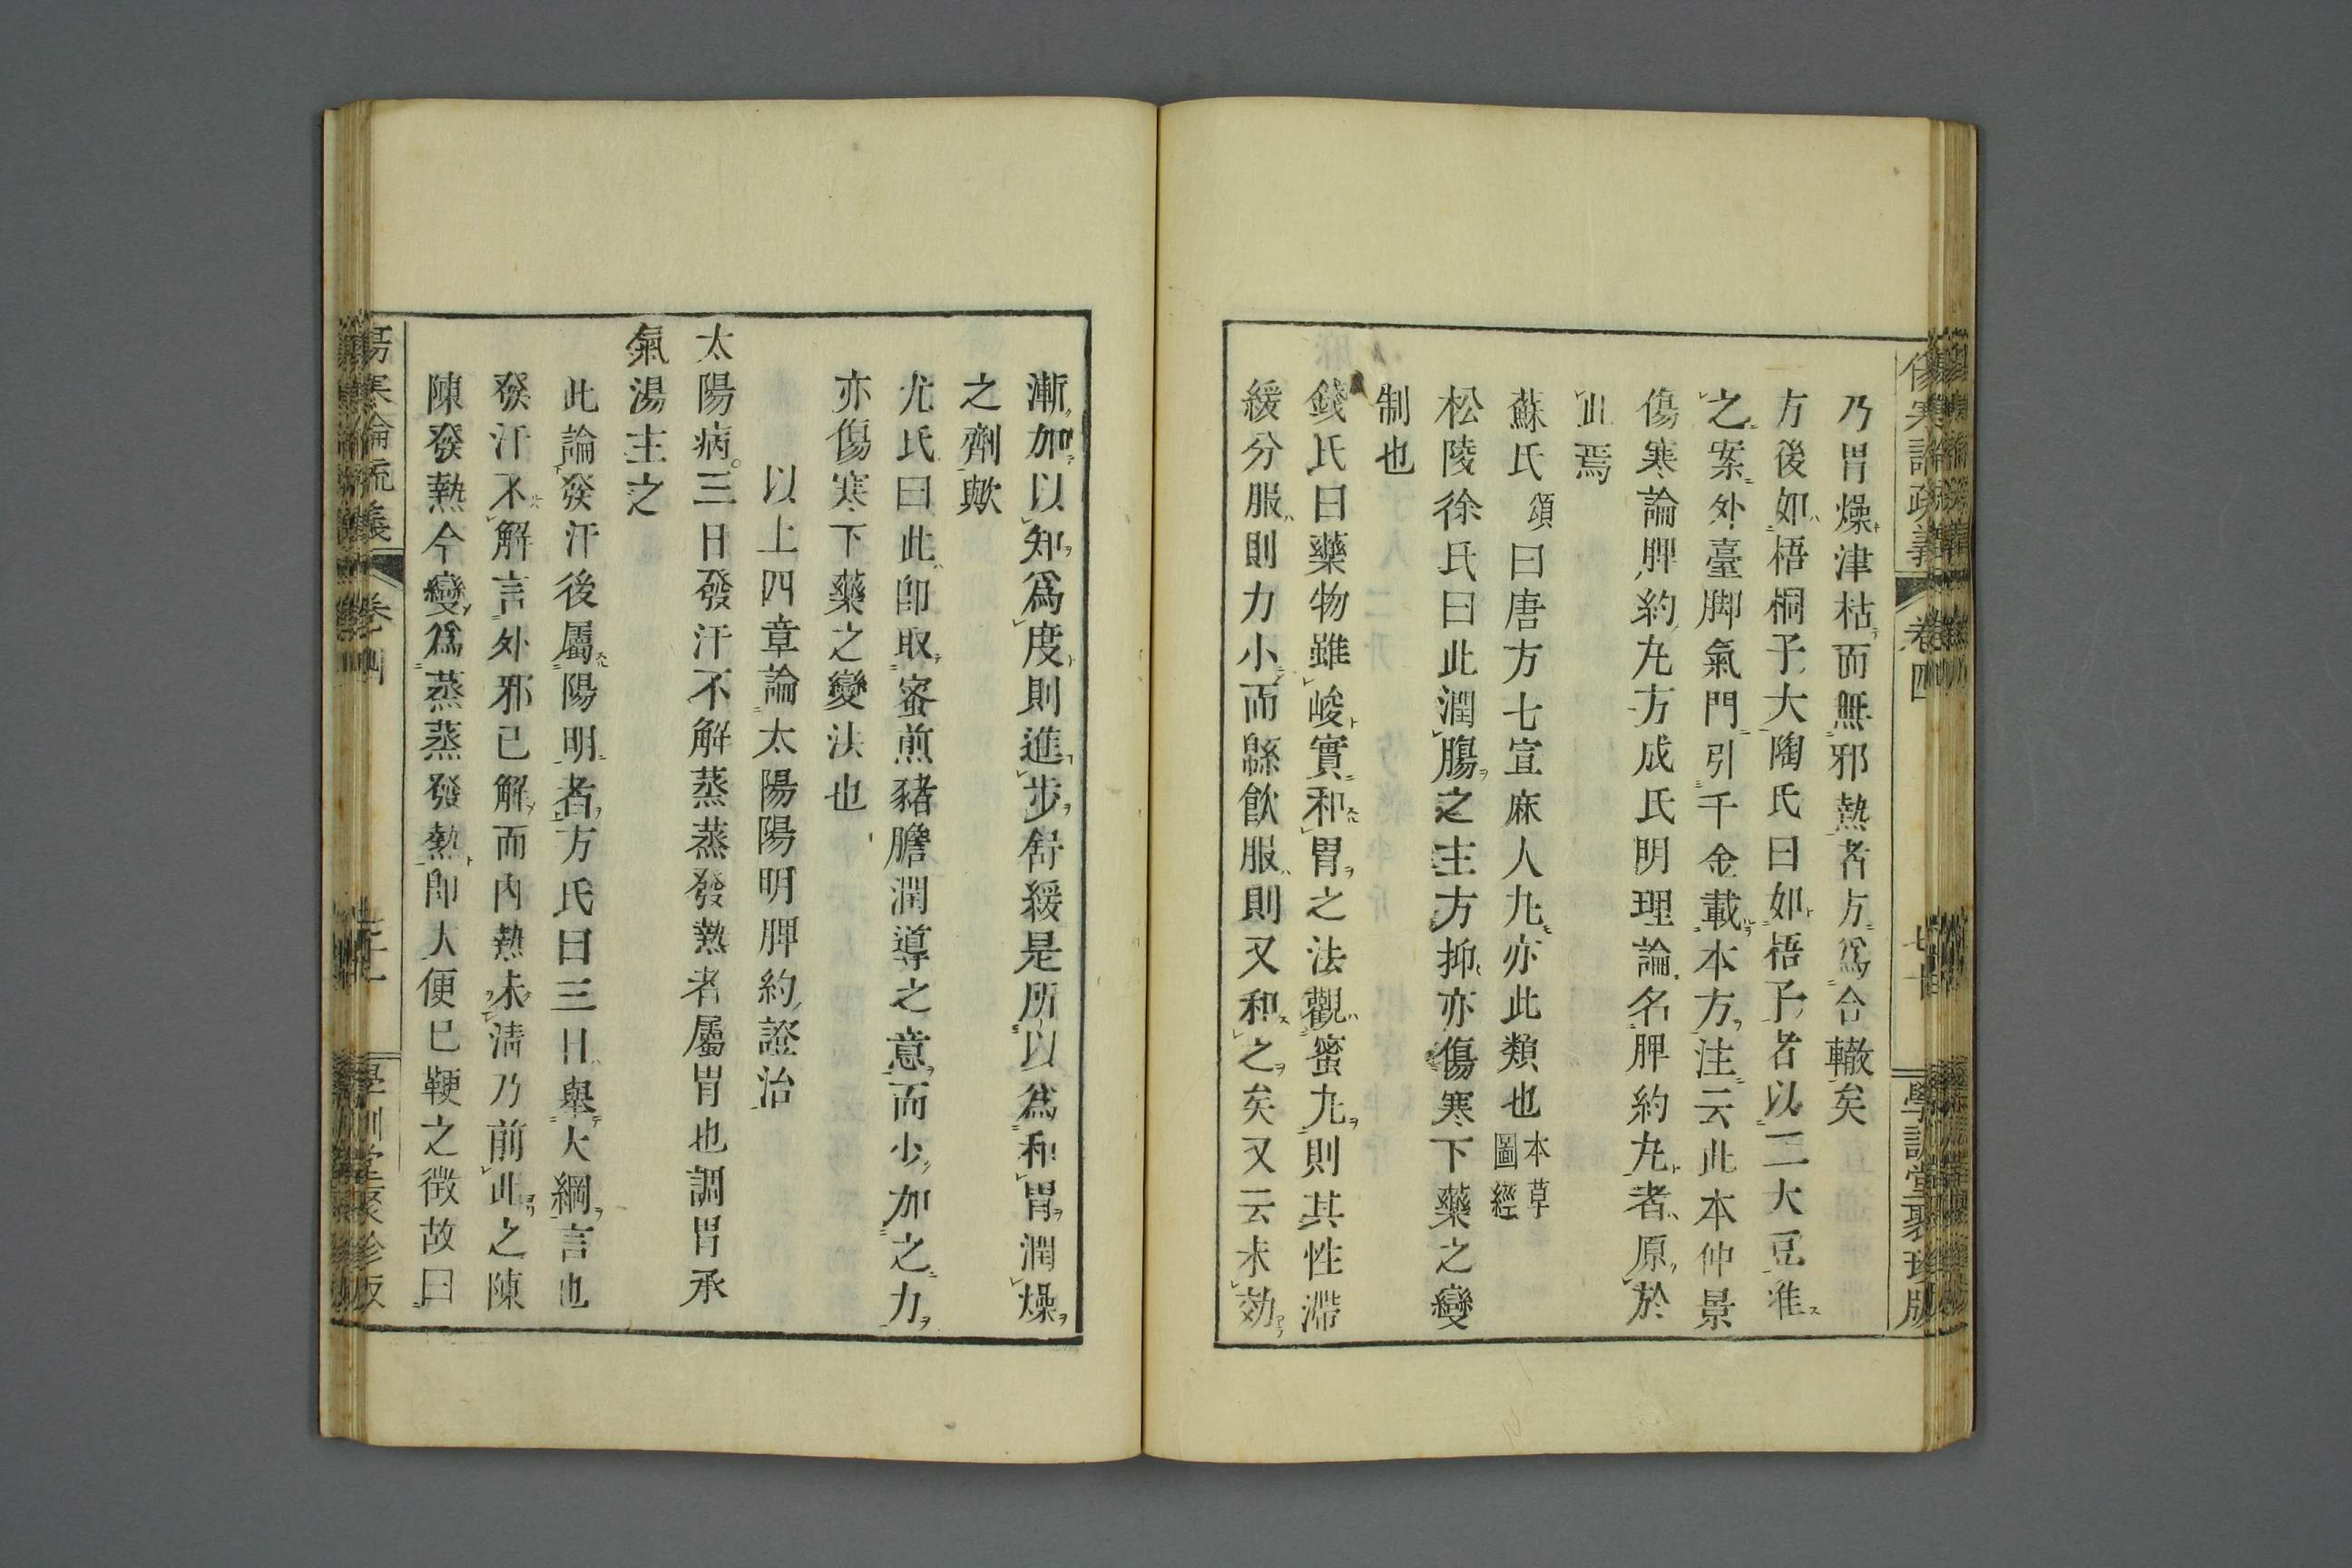 乃胃燥津枯而無邪熱者方爲合轍矣
方後如梧桐子大陶氏曰如梧子者以二大豆准
之案外臺脚氣門引千金載本方注云此本仲景
傷寒論脾約丸方成氏明理論名脾約丸者原於
此焉
蘇氏頌曰唐方七宣麻人丸亦此類也本草圖經
松陵徐氏曰此潤腸之主方抑亦傷寒下藥之變
制也
錢氏曰藥物雖峻實和胃之法觀蜜丸則其性滯
緩分服則力小而緜飮服則又和之矣又云未効
漸加以知爲度則進步舒緩是所以爲和胃潤燥
之劑歟
尤氏曰此卽取蜜煎豬膽潤導之意而少加之力
亦傷寒下藥之變法也
以上四章論太陽陽明脾約證治
太陽病三日發汗不解蒸蒸發熱者屬胃也調胃承
氣湯主之
此論發汗後屬陽明者方氏曰三日舉大綱言也
發汗不解言外邪已解而內熱未淸乃前此之陳
陳發熱今變爲蒸蒸發熱卽大便已鞕之徵故曰